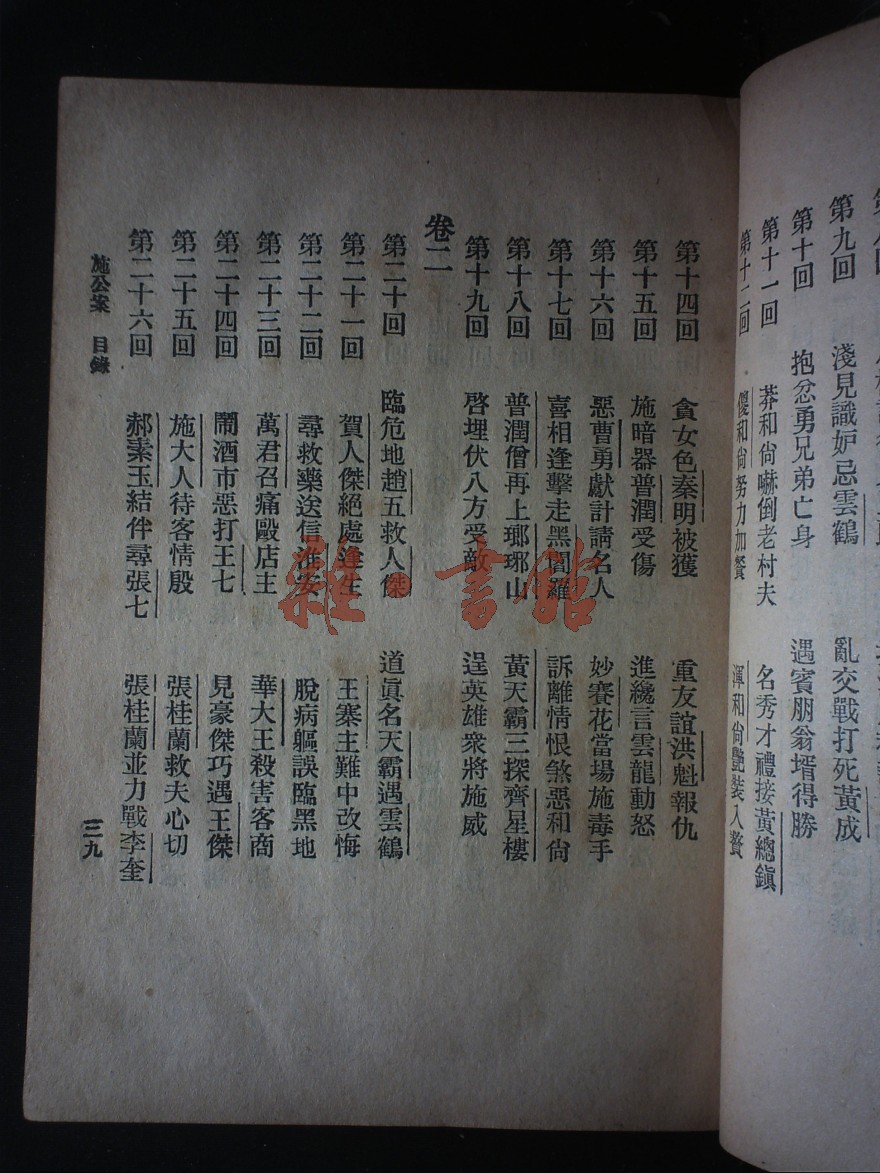 第九回　淺見識妒忌雲鶴　亂交戰打死黃成
第十回　抱忿勇兄弟亡身　遇賓朋翁壻得勝
第十一回　莽和尙嚇倒老村夫　名秀才禮接黃總鎭
第十二回　傻和尙努力加餐　渾和尙艷裝入贅
第十四回　貪女色秦明被獲　重友誼洪魁報仇
第十五回　施暗器普潤受傷　進纔言雲龍動怒
第十六回　惡曹勇獻計請名人　妙賽花當場施毒手
第十七回　喜相逢擊走黑閻羅　訴離情恨煞惡和尙
第十八回　普潤僧再上瑯琊山　黃天霸三探齊星樓
第十九回　啓埋伏八方受敵　逞英雄衆將施威
卷二
第二十回　臨危地趙五救人傑　道眞名天霸遇雲鶴
第二十一回　賀人傑絕處逢生　王寨主難中改悔
第二十二回　尋救藥送信淮安　脫病軀誤臨黑地
第二十三回　萬君召痛毆店主　華大王殺害客商
第二十四回　鬧酒市惡打王七　見豪傑巧遇王傑
第二十五回　施大人待客情殷　張桂蘭救夫心切
第二十六回　郝素玉結伴尋張七　張桂蘭並力戰李奎
施公案　目錄
三九
雜·書館